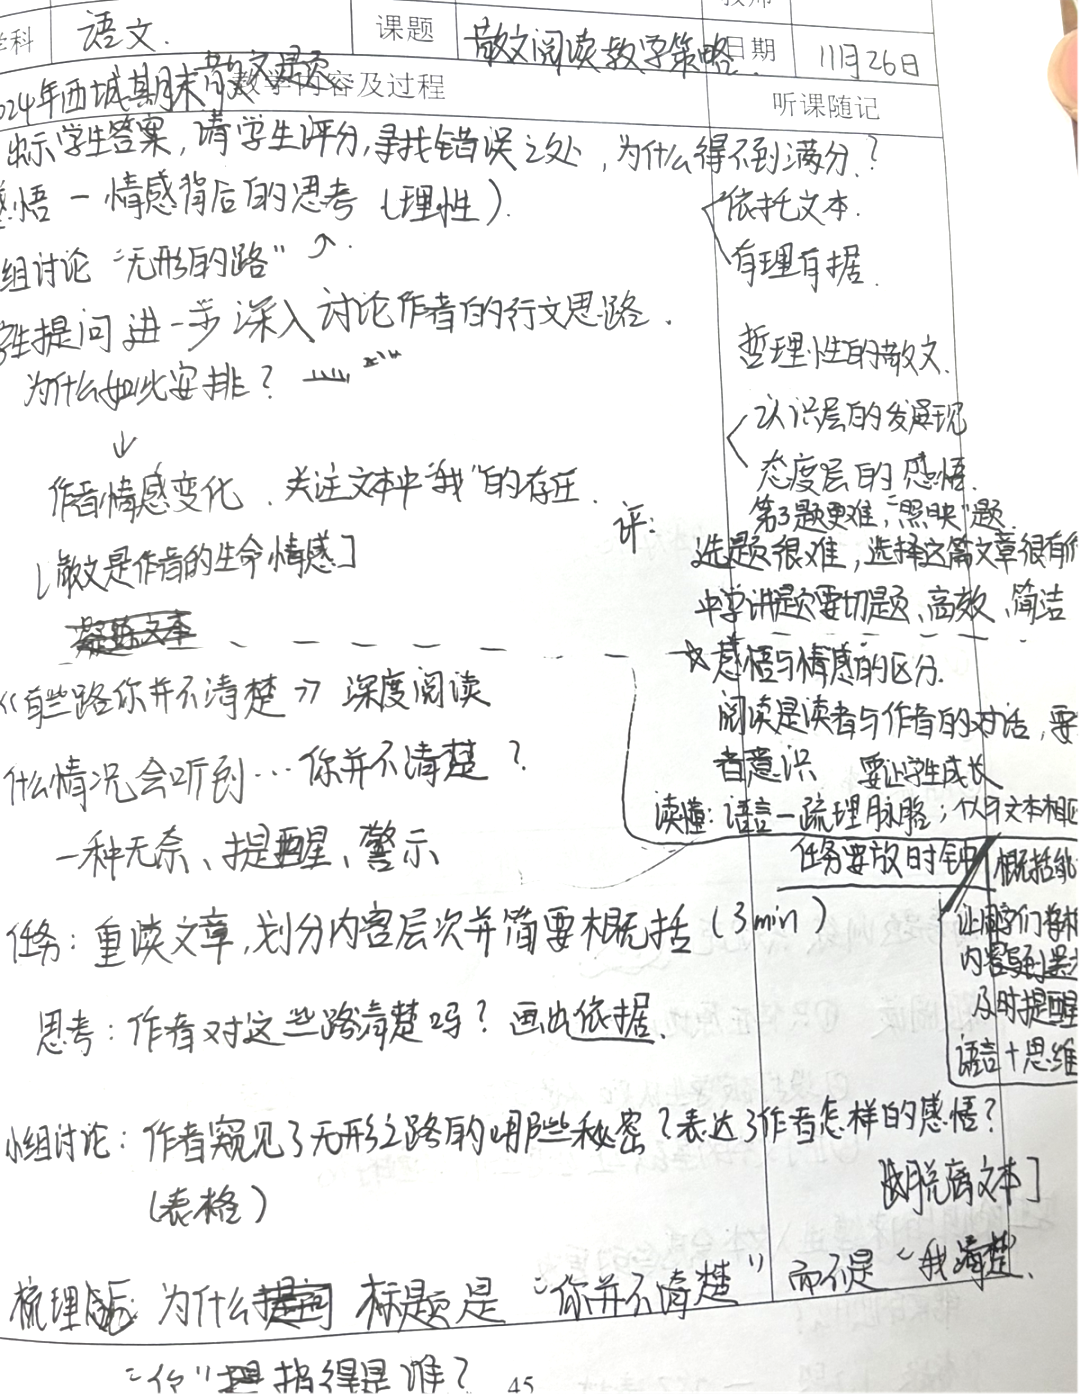 学科 语文. 课题 散文阅读教学策略. 日期 11月26日
教学内容及过程 听课随记
2024年西城期末散文是否
出示学生答案,请学生评分,寻找错误之处,为什么得不到满分?
感悟-情感背后的思考(理性).
依托文本.
组讨论“无形的路”
有理有据.
学生提问进一步深入讨论作者的行文思路.
哲理性的散文.
为什么如此安排?
认识层的发现
态度层的感悟.
作者情感变化、关注文本中“我”的存在.
第3题更难,“照映”题.
评:
选题很难,选择这篇文章很有价
[散文是作者的生命情感]
中学讲题要切题、高效、简洁
☆感悟与情感的区分.
《有些路你并不清楚》深度阅读
阅读是读者与作者的对话,要
者意识 要让学生成长
什么情况会听到…你并不清楚?
读懂:语言-疏理脉络;
一种无奈、提醒、警示
任务要放时钟
概括能
任务:重读文章,划分内容层次并简要概括(3min)
及时提醒
思考:作者对这些路清楚吗?画出依据.
语言+思维
小组讨论:作者窥见了无形之路的哪些秘密?表达了作者怎样的感悟?
(表格)
脱离文本]
梳理 为什么 标题是“你并不清楚”而不是“我清楚”.
“你” 指得是谁?
45